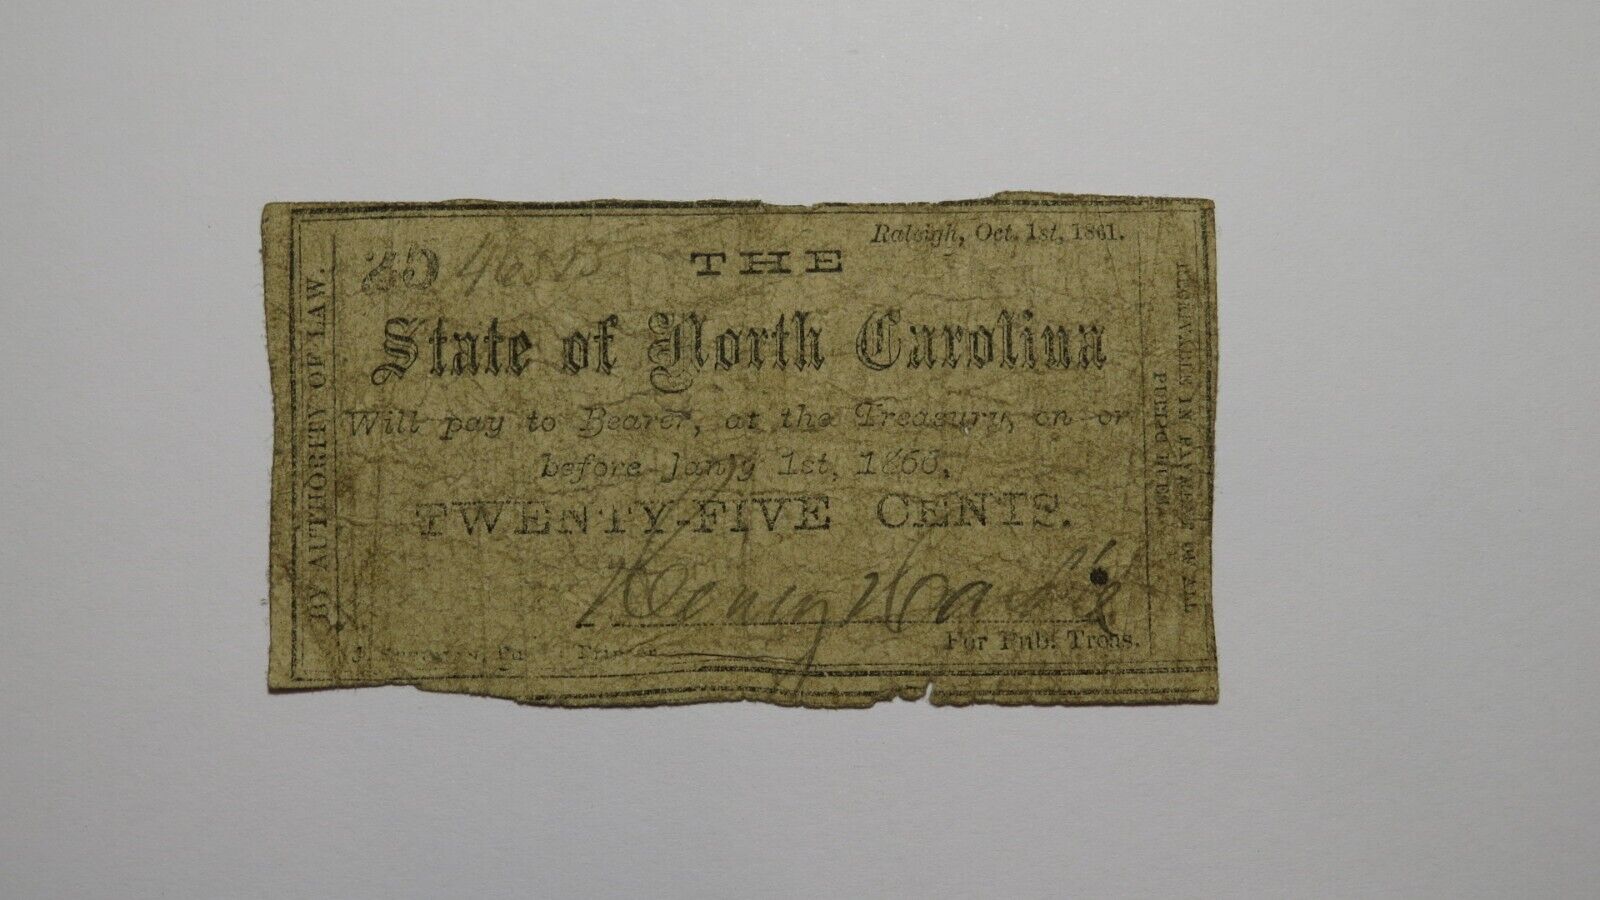 Raleigh, Oct. 1st, 1861.
25
THE
State of North Carolina
Will pay to Bearer, at the Treasury, on or
before Jan'y 1st, 1866,
TWENTY-FIVE CENTS.
For Pub. Treas.
BY AUTHORITY OF LAW.
RECEIVABLE IN PAYMENT OF ALL
PUBLIC DUES.